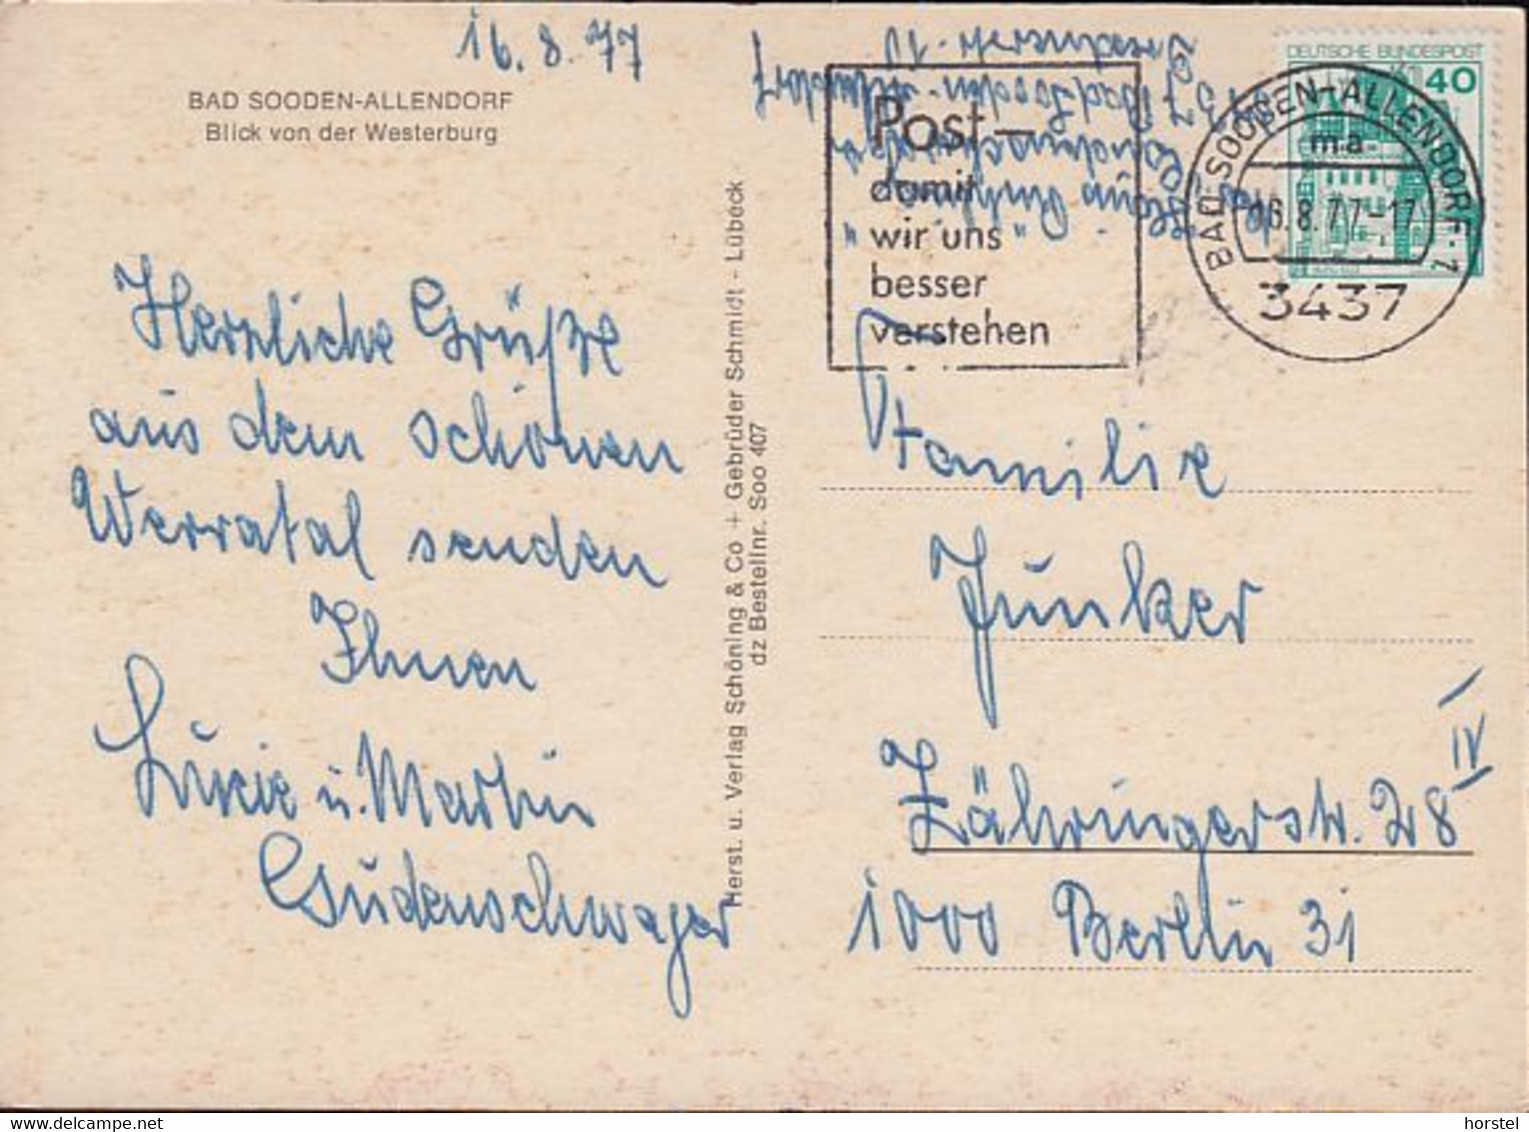 16.8.77
BAD SOODEN-ALLENDORF
Blick von der Westerburg
Herzliche Grüße
aus dem schönen
Werratal senden
Ihnen
Lucie u. Martin
Gudenschwager
Herst. u. Verlag Schöning & Co + Gebrüder Schmidt - Lübeck
dz Bestellnr. Soo 407
Bad Sooden-Allendorf
Post –
damit
wir uns
besser
verstehen
DEUTSCHE BUNDESPOST
40
BAD SOODEN-ALLENDORF 1
ma
16.8.77-17
3437
Familie
Junker
Zähringerstr. 28 IV
1000 Berlin 31
hippostcard.com
horstel